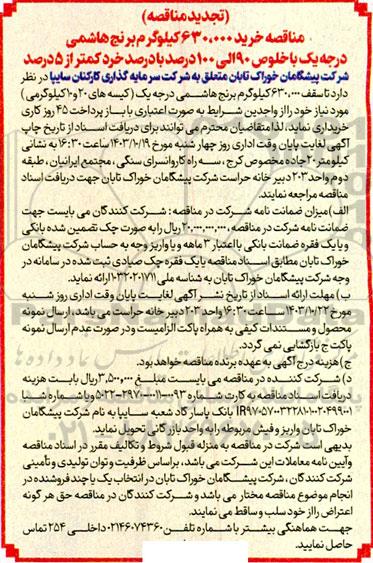 (تجدید مناقصه)
مناقصه خرید ۶۳۰,۰۰۰ کیلوگرم برنج هاشمی
درجه یک با خلوص ۹۰ الی ۱۰۰ درصد با درصد خرد کمتر از ۵ درصد
شرکت پیشگامان خوراک تابان متعلق به شرکت سرمایه گذاری کارکنان سایپا در نظر
دارد تا سقف ۶۳۰,۰۰۰ کیلوگرم برنج هاشمی درجه یک (کیسه های ۲۰ و ۱۰ کیلوگرمی)
مورد نیاز خود را از واجدین شرایط به صورت اعتباری با باز پرداخت ۴۵ روز کاری
خریداری نماید، لذا متقاضیان محترم می توانند برای دریافت اسناد از تاریخ چاپ
آگهی لغایت پایان وقت اداری روز چهار شنبه مورخ ۱۴۰۳/۱۰/۱۹ ساعت ۱۶:۳۰ به نشانی
کیلومتر ۲۰ جاده مخصوص کرج، سه راه کاروانسرای سنگی، مجتمع ایرانیان، طبقه
دوم واحد ۲۰۳ دبیر خانه حراست شرکت پیشگامان خوراک تابان جهت دریافت اسناد
مناقصه مراجعه نمایند.
الف) میزان ضمانت نامه شرکت در مناقصه: شرکت کنندگان می بایست جهت
ضمانت نامه شرکت در مناقصه، ۲۰,۰۰۰,۰۰۰,۰۰۰ ریال را به صورت چک تضمین شده بانکی
و یا یک فقره ضمانت بانکی با اعتبار ۳ ماهه و یا واریز وجه به حساب شرکت پیشگامان
خوراک تابان مطابق اسناد مناقصه یا یک فقره چک صیادی ثبت شده در سامانه در
وجه شرکت پیشگامان خوراک تابان به شناسه ملی ۱۰۳۲۰۲۰۱۷۱۱ ارائه نماید.
ب) مهلت ارائه اسناد از تاریخ نشر آگهی لغایت پایان وقت اداری روز شنبه
مورخ ۱۴۰۳/۱۰/۲۲ ساعت ۱۶:۳۰ واحد ۲۰۳ دبیر خانه حراست می باشد، ارسال نمونه
محصول و مستندات کیفی به همراه پاکت الزامیست و در صورت عدم ارسال نمونه
پاکت ج بازگشایی نمی گردد.
ج) هزینه درج آگهی به عهده برنده مناقصه خواهد بود.
د) شرکت کننده در مناقصه می بایست مبلغ ۳,۵۰۰,۰۰۰ ریال بابت هزینه
دریافت اسناد مناقصه به کارت شماره ۵۰۲۲-۲۹۷۰-۰۰۱۱-۰۰۹۳ و یا شماره شبا
بانک پاسارگاد شعبه سایپا به نام شرکت پیشگامان
خوراک تابان واریز و فیش مربوطه را به واحد بازرگانی تحویل نماید.
بدیهی است شرکت در مناقصه به منزله قبول شروط و تکالیف مقرر در اسناد مناقصه
و آیین نامه معاملات این شرکت می باشد، براساس ظرفیت و توان تولیدی و تأمینی
شرکت کنندگان، شرکت پیشگامان خوراک تابان در انتخاب یک یا چند فروشنده در
انجام موضوع مناقصه مختار می باشد و شرکت کنندگان در مناقصه حق هر گونه
اعتراض را از خود سلب و ساقط می نمایند.
جهت هماهنگی بیشتر با شماره تلفن ۰۲۱۴۶۰۷۴۳۶۰ داخلی ۲۵۴ تماس
حاصل نمایید.